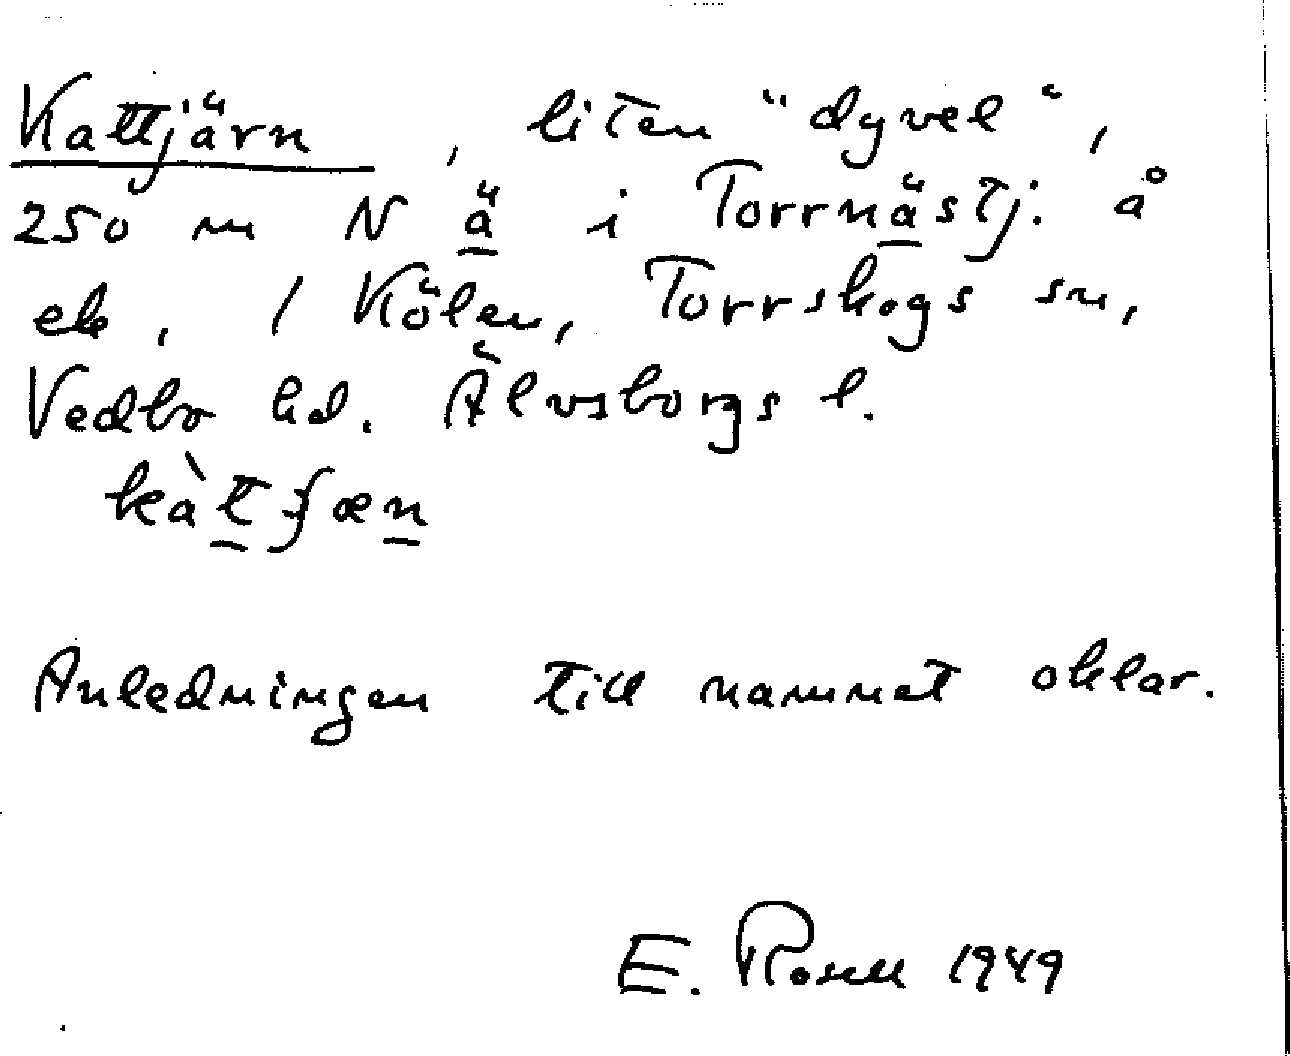 Kattjärn, liten "dyvel",
250 m N ä i Torrnästj. å
ek, 1 Kölen, Torrskogs sn,
Vedbo hd. Älvsborgs l.
kàtʃæn
Anledningen till namnet oklar.
E. Rosell 1949